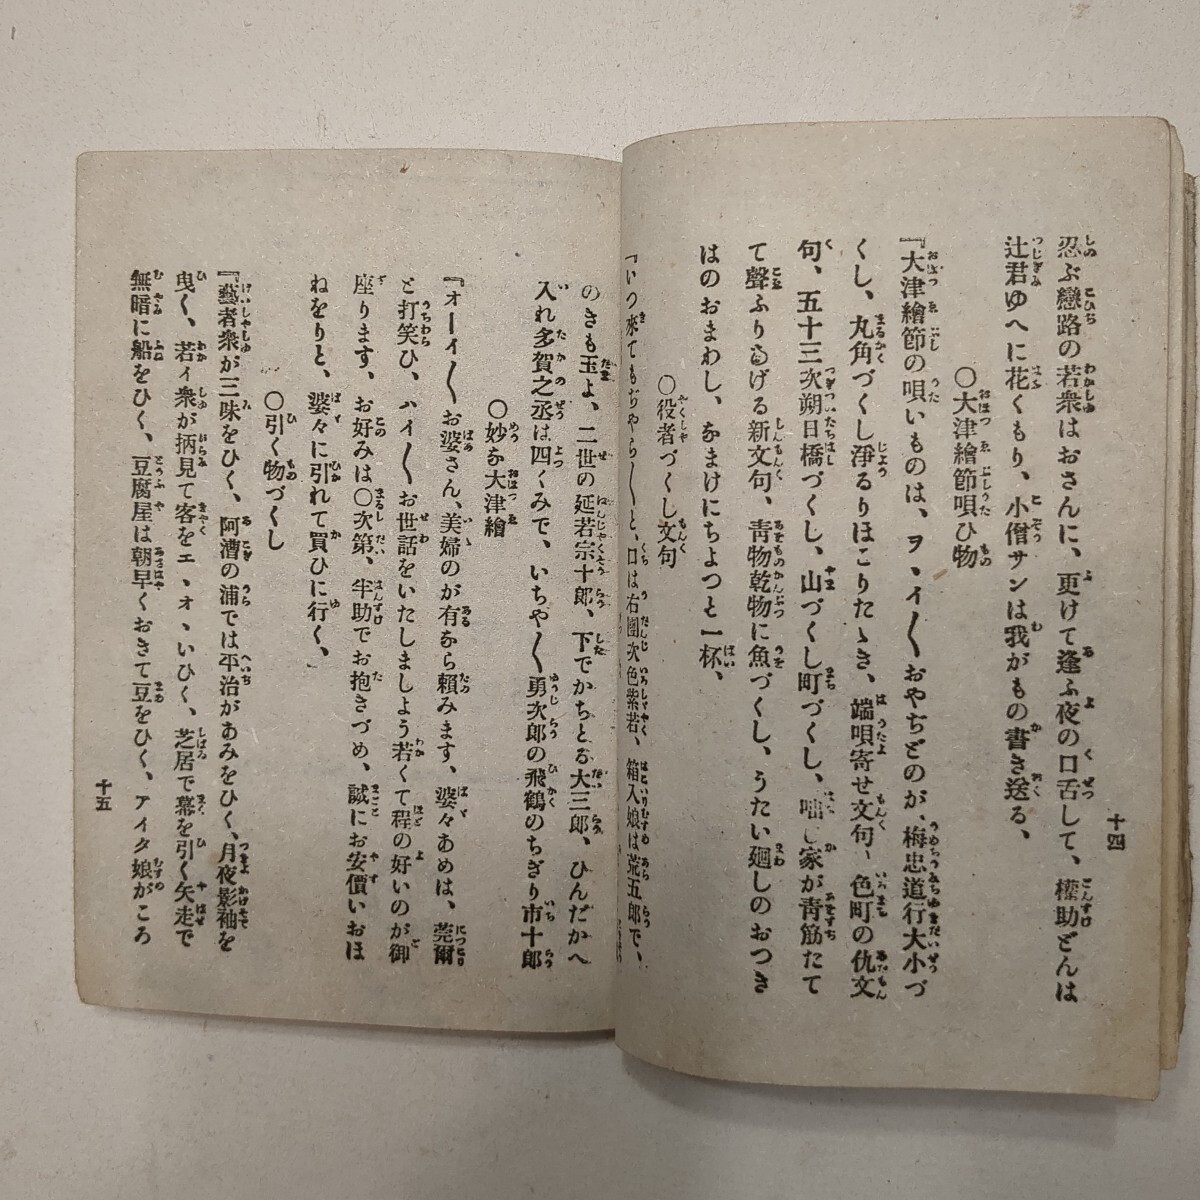 忍ぶ戀路の若衆はおさんに、更けて逢ふ夜の口舌して、權助どんは
辻君ゆへに花くもり、小僧サンは我がもの書き送る、
〇大津繪節唄ひ物
『大津繪節の唄いものは、ヲヽイ〱おやぢどのが、梅忠道行大小づ
くし、丸角づくし淨るりほこりたゝき、端唄寄せ文句、色町の仇文
句、五十三次朔日橋づくし、山づくし町づくし、咄し家が靑筋たて
て聲ふりあげる新文句、靑物乾物に魚づくし、うたい廻しのおつき
はのおまわし、なまけにちよつと一杯、
〇役者づくし文句
『いつ來てもぢやら〱と、口は右團次色紫若、箱入娘は荒五郎で、
十四
のきも玉よ、二世の延若宗十郎、下でかちとる大三郎、ひんだかへ
入れ多賀之丞は四くみで、いちや〱勇次郎の飛鶴のちぎり市十郎
〇妙な大津繪
『オーイ〱お婆さん、美婦のが有なら賴みます、婆々あめは、莞爾
と打笑ひ、ハイ〱お世話をいたしましよう若くて程の好いのが御
座ります、お好みは〇次第、半助でお抱きづめ、誠にお安價いおほ
ねをりと、婆々に引れて買ひに行く、
〇引く物づくし
『藝者衆が三味をひく、阿漕の浦では平治があみをひく、月夜影袖を
曳く、若イ衆が柄見て客をエヽオヽいひく、芝居で幕を引く矢走で
無暗に船をひく、豆腐屋は朝早くおきて豆をひく、アイタ娘がころ
十五